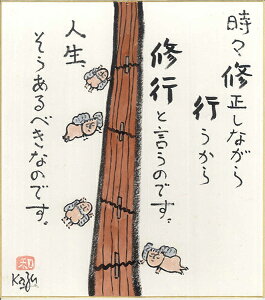 時々、修正しながら
行うから
修行と言うのです。
人生、
そうあるべきなのです。
和
Kazu